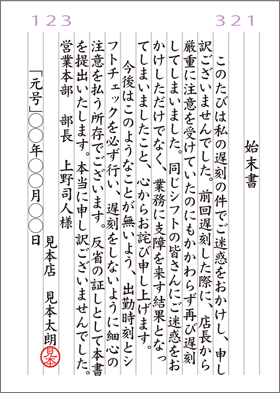 123
321
始末書
このたびは私の遅刻の件でご迷惑をおかけし、申し
訳ございませんでした。前回遅刻した際に、店長から
厳重に注意を受けていたのにもかかわらず再び遅刻
してしまいました。同じシフトの皆さんにご迷惑をお
かけしただけでなく、業務に支障を来す結果となっ
てしまいましたこと、心からお詫び申し上げます。
今後はこのようなことが無いよう、出勤時刻とシ
フトチェックを必ず行い、遅刻をしないように細心の
注意を払う所存でございます。反省の証しとして本書
を提出いたします。本当に申し訳ございませんでした。
営業本部 部長 上野司人様
見本店 見本太朗 見本
「元号」〇〇年〇〇月〇〇日